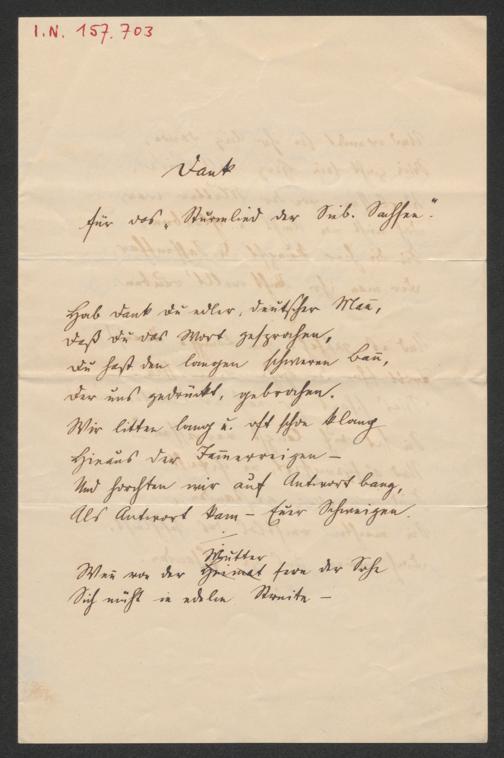 I.N. 157.703
Dank
für das „Sturmlied der Sieb. Sachsen“.
Hab Dank du edler, deutscher Mañ,
Daß du das Wort gesprochen,
Du hast den langen schweren Bañ,
Der uns gedrückt, gebrochen.
Wir litten lang u. oft schon klang
Hinaus der Jam̃erreigen –
Und horchten wir auf Antwort bang,
Als Antwort kam – Euer Schweigen.
Mutter
Weñ von der Heimat fern der Sohn
Sich müht in edelm Streite –